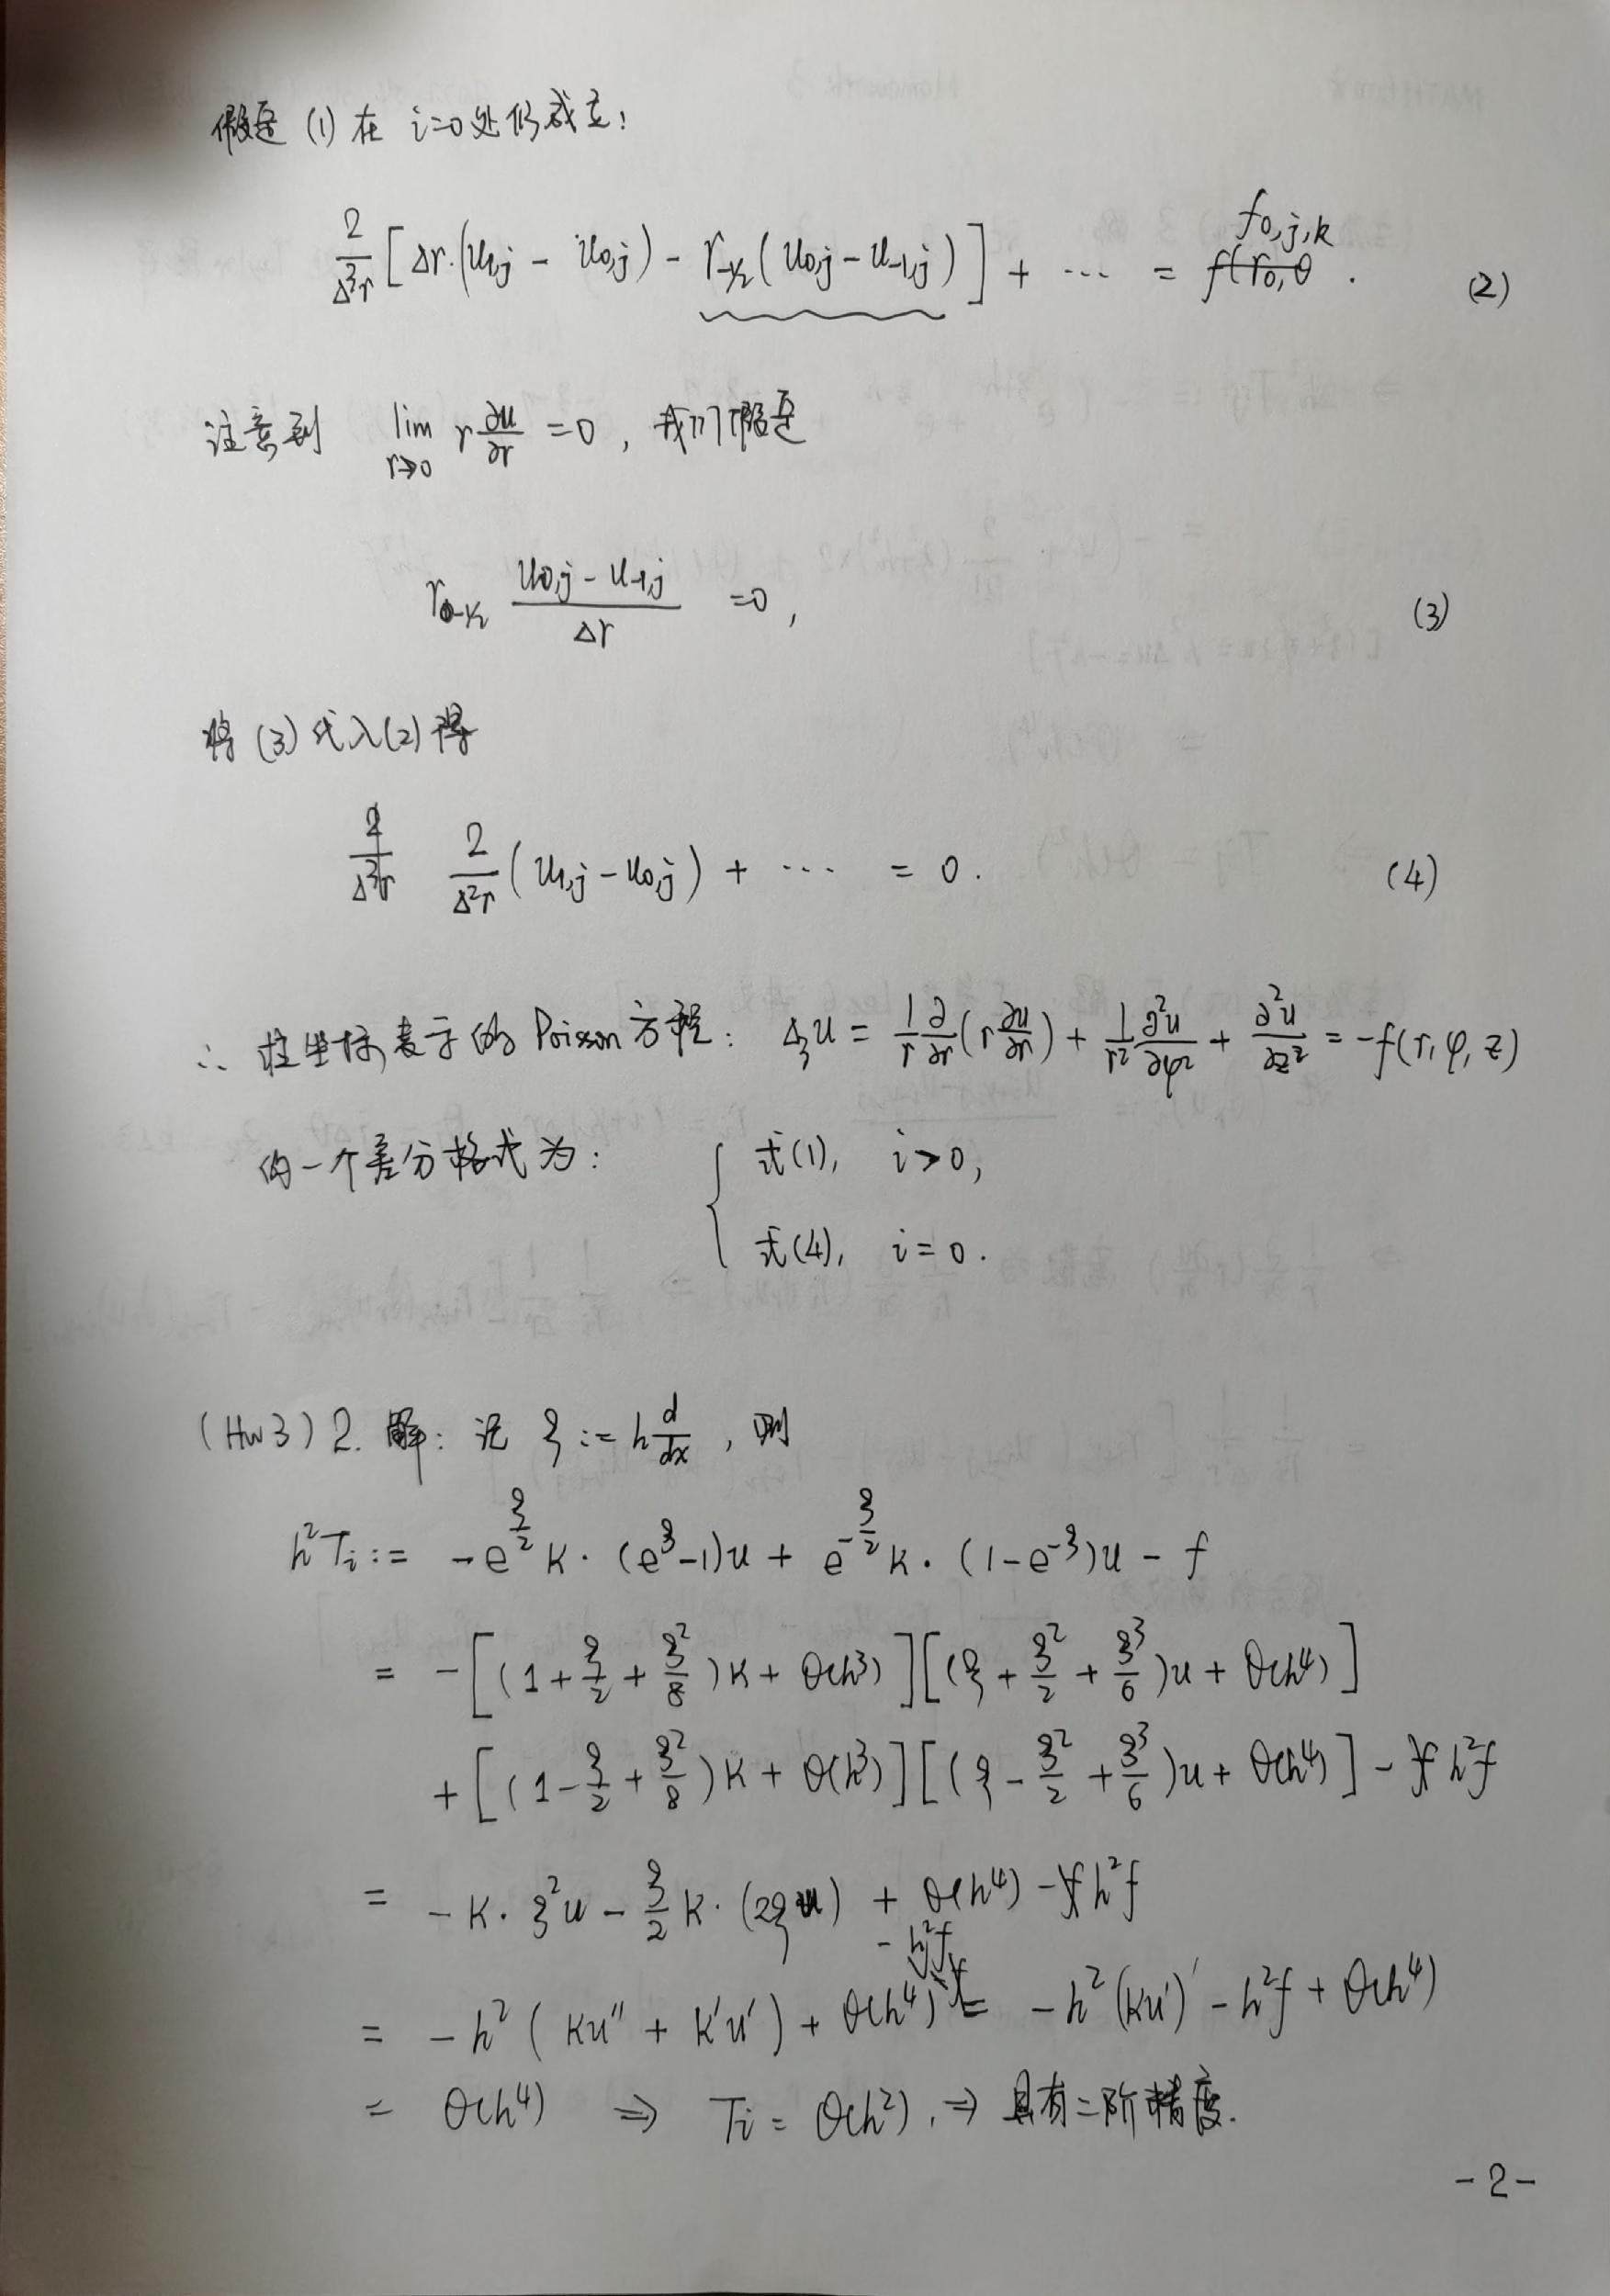 假定 (1) 在 i=0 处仍成立:
2/Δ³r [Δr·(u₁,j - u₀,j) - r₋½(u₀,j - u₋₁,j)] + ⋯ = f₀,j,k . (2)
注意到 lim_{r→0} r ∂u/∂r = 0, 我们假定
r₋½ (u₀,j - u₋₁,j)/Δr = 0, (3)
将 (3) 代入(2)得
2/Δ²r (u₁,j - u₀,j) + ⋯ = 0. (4)
∴ 柱坐标表示的 Poisson 方程: Δ₃u = 1/r ∂/∂r (r ∂u/∂r) + 1/r² ∂²u/∂φ² + ∂²u/∂z² = -f(r, φ, z)
的一个差分格式为: { 式(1), i>0,
式(4), i=0.
(Hw3) 2. 解: 记 ξ := h d/dx, 则
h²Tᵢ := -e^{ξ/2}κ·(e^ξ-1)u + e^{-ξ/2}κ·(1-e^{-ξ})u - f
= -[(1+ξ/2+ξ²/8)κ + O(h³)][(ξ+ξ²/2+ξ³/6)u + O(h⁴)]
+[(1-ξ/2+ξ²/8)κ + O(h³)][(ξ-ξ²/2+ξ³/6)u + O(h⁴)] - h²f
= -κ·ξ²u - ξ/2 κ·(2ξu) + O(h⁴) - h²f
= -h²(κu″ + κ′u′) + O(h⁴) - h²f = -h²(κu′)′ - h²f + O(h⁴)
= O(h⁴) ⇒ Tᵢ = O(h²), ⇒ 具有二阶精度.
-2-